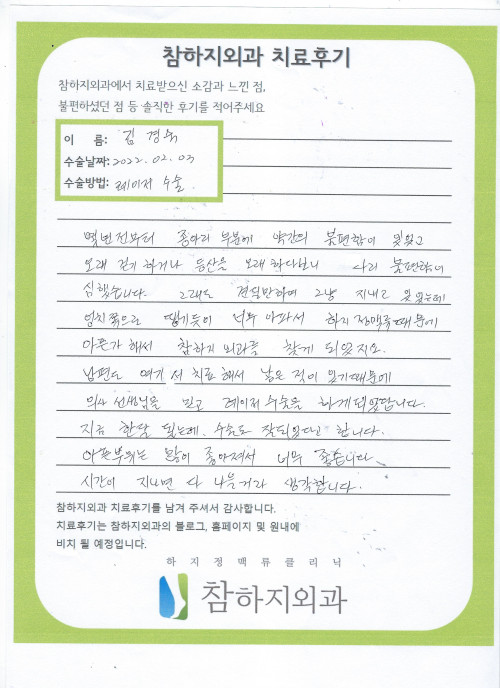 참하지외과 치료후기
참하지외과에서 치료받으신 소감과 느낀 점,
불편하셨던 점 등 솔직한 후기를 적어주세요
이 름: 김 경숙
수술날짜: 2022. 02. 03
수술방법: 레이저 수술
몇년전부터 종아리 부분에 약간의 불편함이 있었고
오래 걷기 하거나 등산을 오래 하다보니 다리 불편함이
심했습니다. 그래도 견딜만하여 그냥 지내고 있었는데
엄지쪽으로 땡기듯이 너무 아파서 하지 정맥류 때문에
아픈가 해서 참하지 외과를 찾게 되었지요.
남편도 여기서 치료해서 낳은 적이 있기때문에
의사 선생님을 믿고 레이저 수술을 하게되었답니다.
지금 한달 됐는데, 수술도 잘되었다고 합니다.
아픈부위는 많이 좋아져서 너무 좋습니다.
시간이 지나면 다 나을거라 생각합니다.
참하지외과 치료후기를 남겨 주셔서 감사합니다.
치료후기는 참하지외과의 블로그, 홈페이지 및 원내에
비치 될 예정입니다.
하지정맥류클리닉
참하지외과